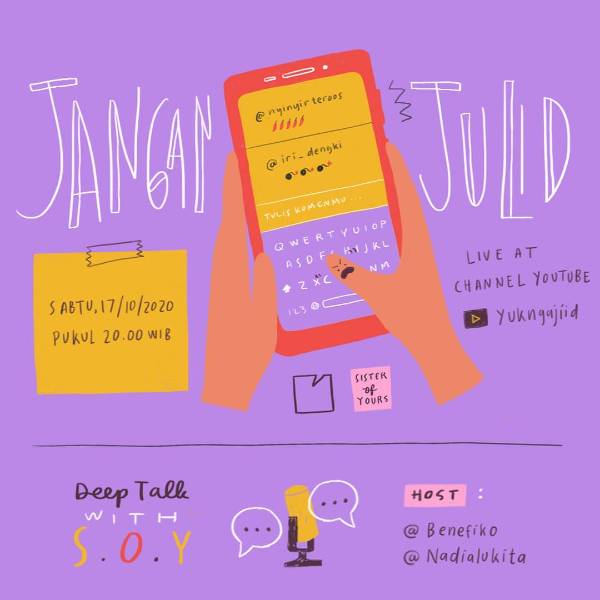 JANGAN JULID
@nyinyirteroos
@iri_dengki
TULIS KOMENMU...
QWERTYUIOP
ASDF HJKL
ZXC NM
123
SABTU, 17/10/2020
PUKUL 20.00 WIB
LIVE AT
CHANNEL YOUTUBE
Yukngajiid
SISTER
of
YOURS
Deep Talk
WITH
S.O.Y
HOST :
@Benefiko
@Nadialukita